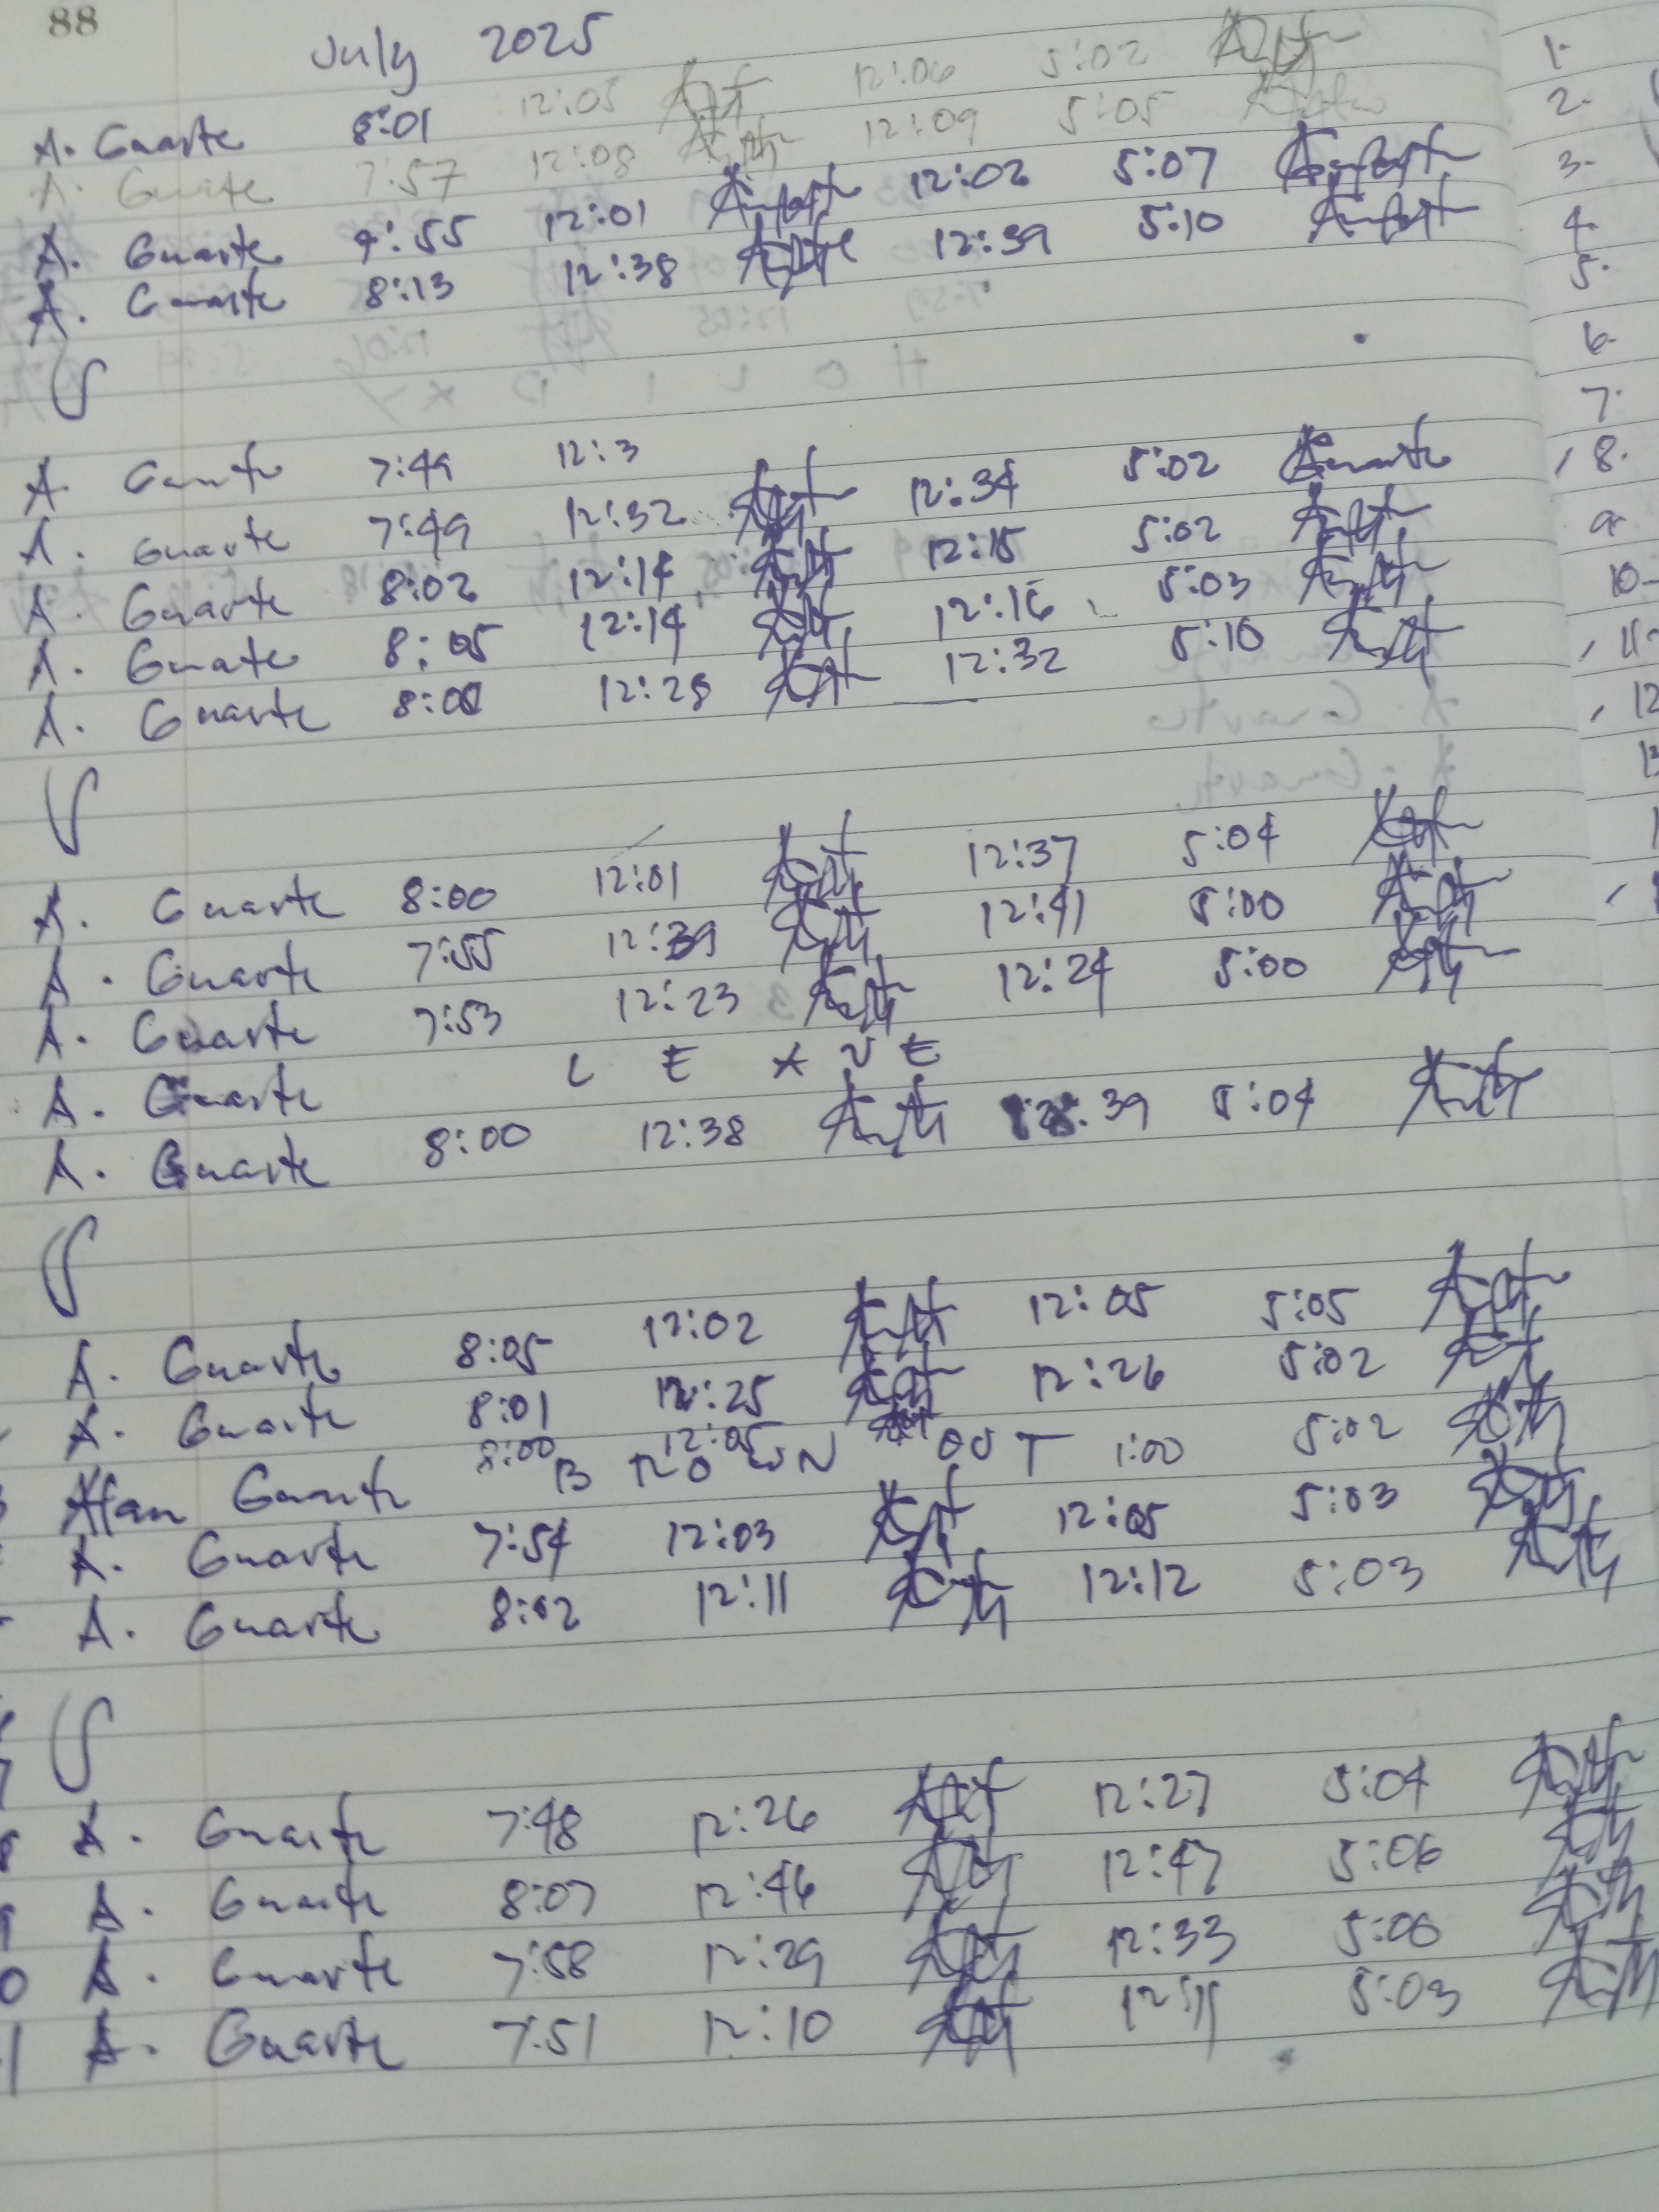 88
July 2025
A. Guarte 8:01 12:05 12:06 5:02
A. Guarte 7:57 12:08 12:09 5:05
A. Guarte 7:55 12:01 12:02 5:07
A. Guarte 8:13 12:38 12:39 5:10
A. Guarte 7:49 12:3
A. Guarte 7:49 12:32 12:34 5:02
A. Guarte 8:02 12:14 12:15 5:02
A. Guarte 8:05 12:14 12:16 5:03
A. Guarte 12:28 12:32 5:10
A. Guarte 8:00 12:01 12:37 5:04
A. Guarte 7:55 12:39 12:41 5:00
A. Guarte 7:53 12:23 12:24 5:00
A. Guarte LEAVE
A. Guarte 8:00 12:38 12:39 5:04
A. Guarte 8:05 12:02 12:05 5:05
A. Guarte 8:01 12:25 12:26 5:02
Alan Guarte 8:00 BROWN OUT 12:05 1:00 5:02
A. Guarte 7:54 12:03 12:05 5:03
A. Guarte 8:02 12:11 12:12 5:03
A. Guarte 7:48 12:26 12:27 5:04
A. Guarte 8:07 12:46 12:47 5:06
A. Guarte 7:58 12:29 12:33 5:06
A. Guarte 7:51 12:10 12:11 5:03
1.
2.
3.
4.
5.
6.
7.
8.
9.
10.
11.
12
13